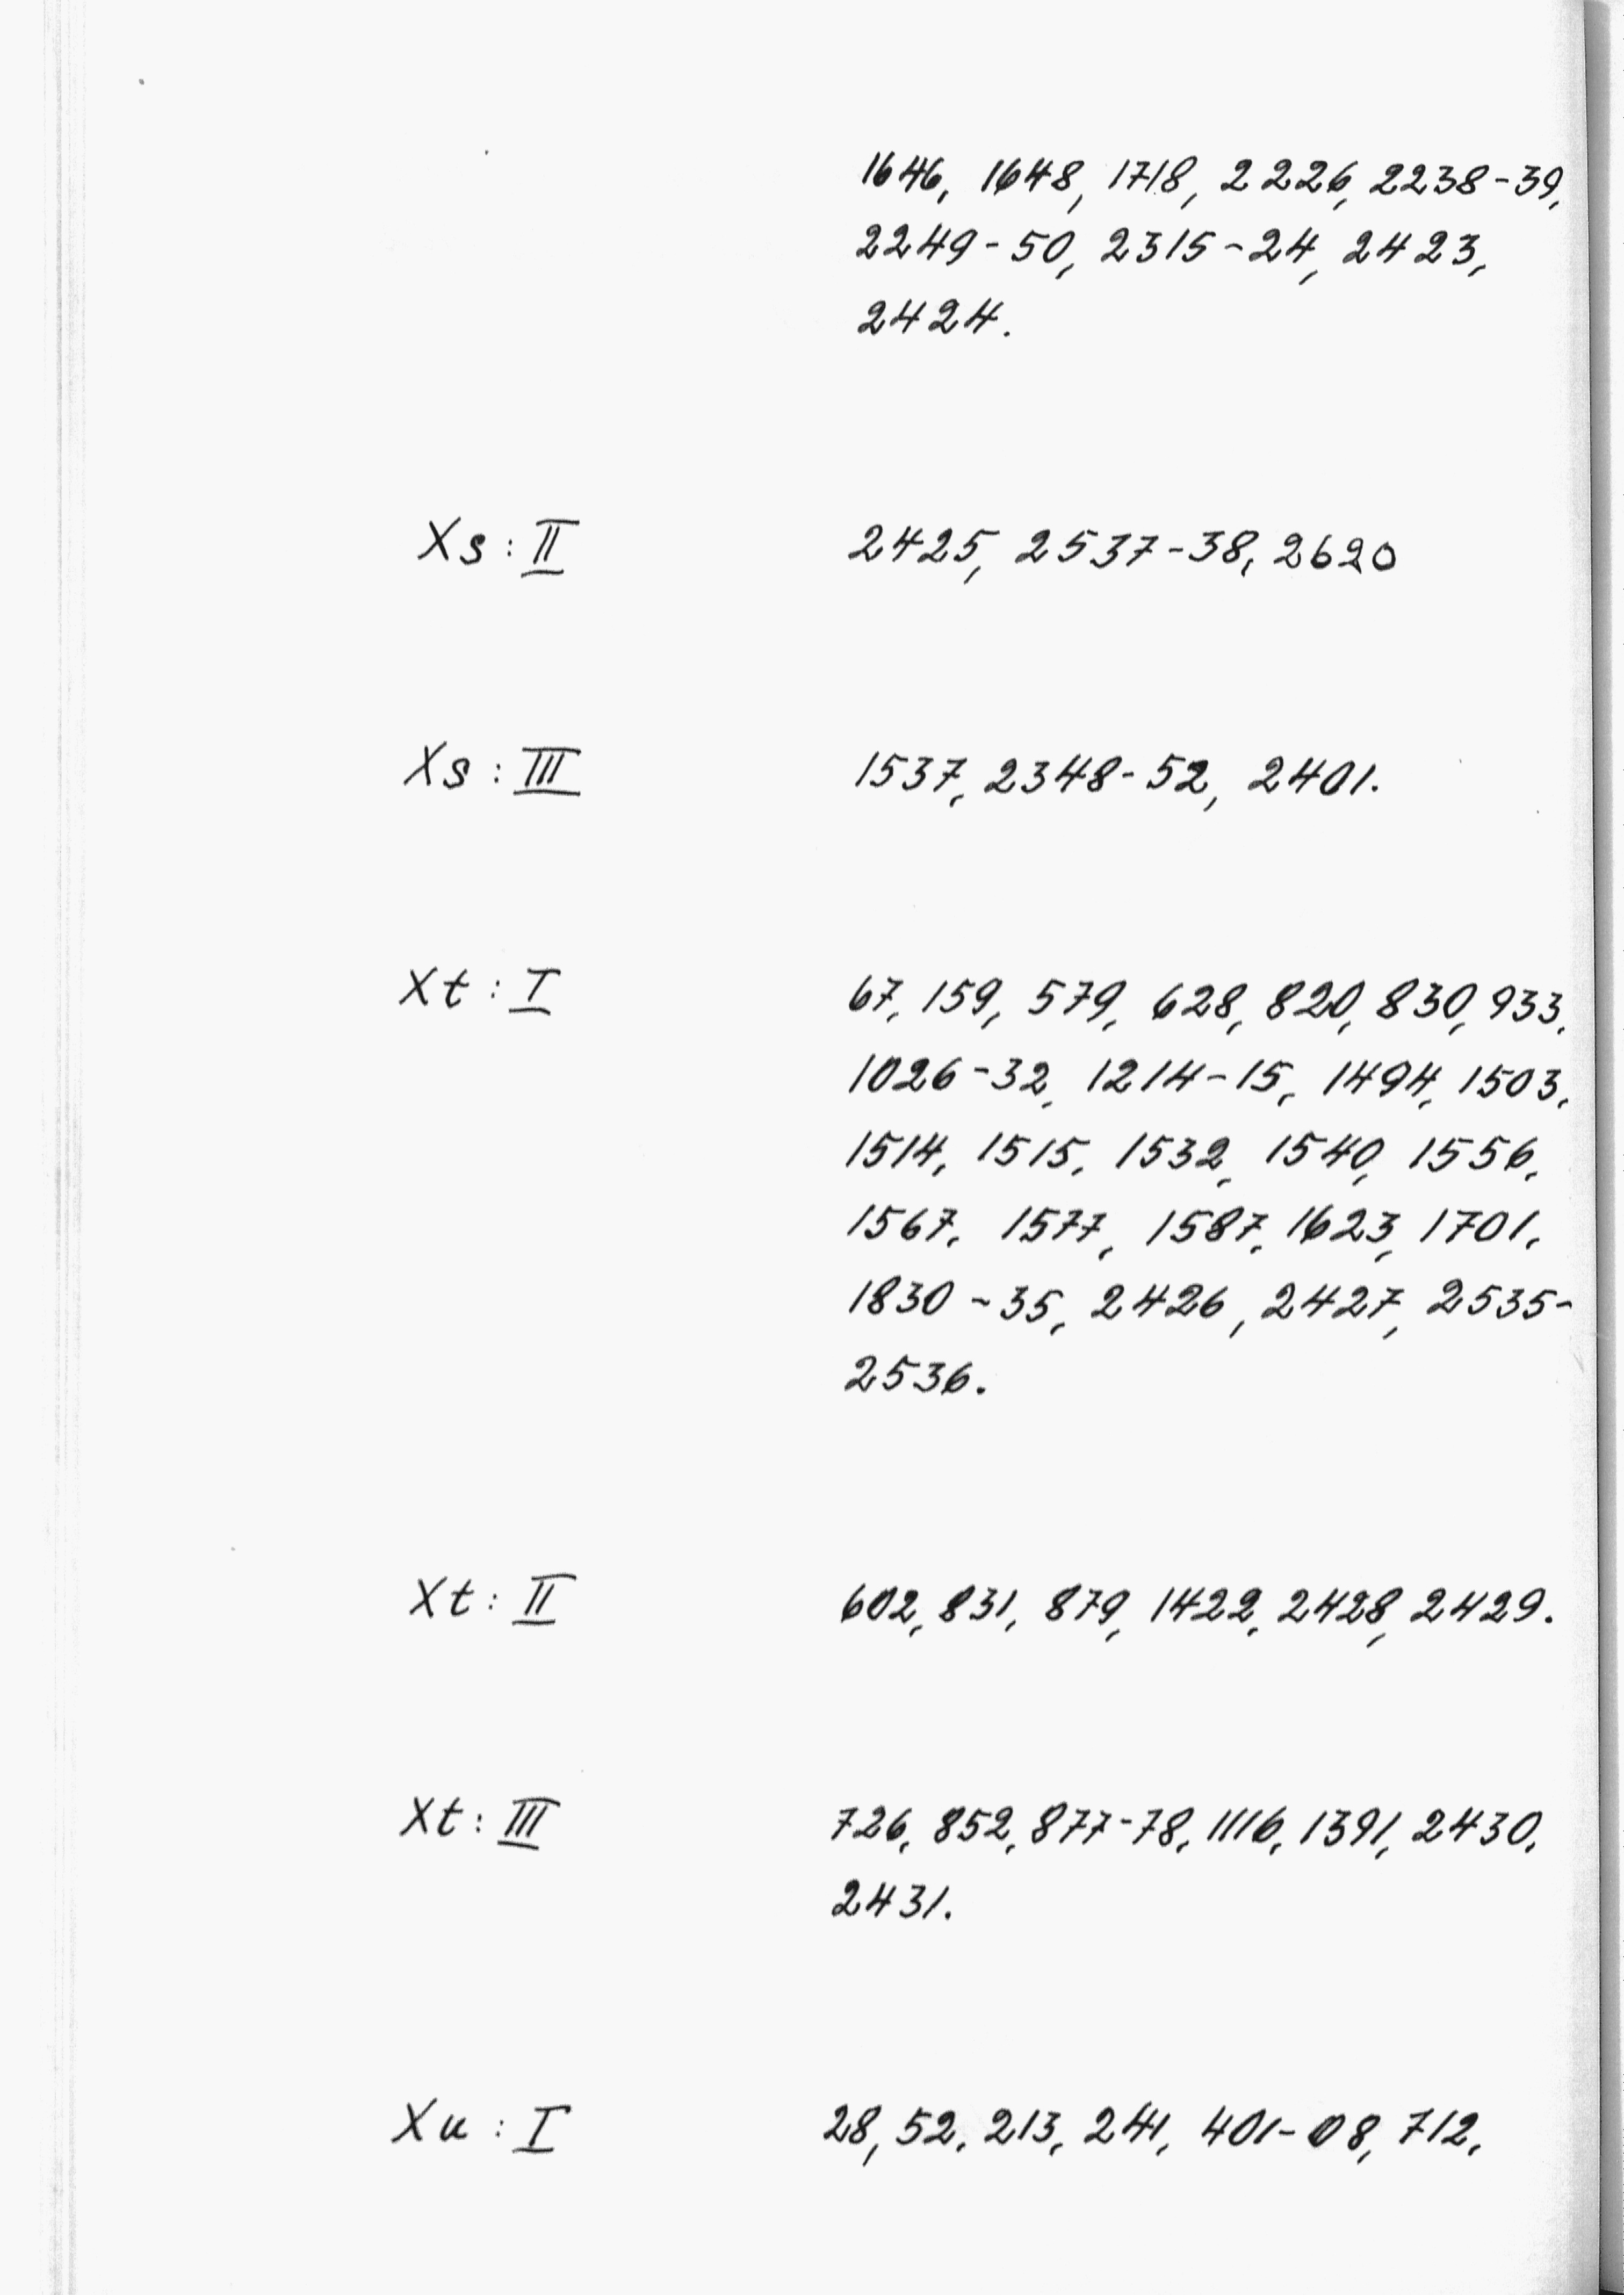 1646, 1648, 1718, 2226, 2238-39,
2249-50, 2315-24, 2423,
2424.
Xs : II 2425, 2537-38, 2620
Xs : III 1537, 2348-52, 2401.
Xt : I 67, 159, 579, 628, 820, 830, 933,
1026-32, 1214-15, 1494, 1503,
1514, 1515, 1532, 1540, 1556,
1567, 1577, 1587, 1623, 1701,
1830-35, 2426, 2427, 2535-
2536.
Xt : II 602, 831, 879, 1422, 2428, 2429.
Xt : III 726, 852, 877-78, 1116, 1391, 2430,
2431.
Xu : I 28, 52, 213, 241, 401-08, 712,